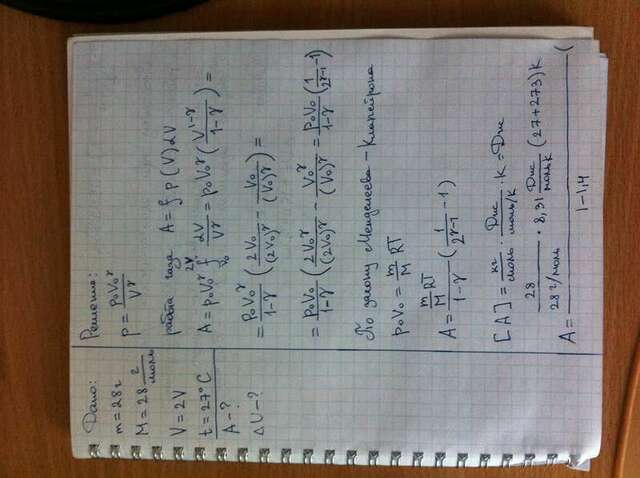 Дано:
m = 28г
M = 28 г/моль
V = 2V
t = 27°C
A – ?
ΔU – ?
Решение:
p = p₀V₀^γ / V^γ
работа газа A = ∫ p(V) dV
A = p₀V₀^γ ∫_{V₀}^{2V} dV/V^γ = p₀V₀^γ (V^{1-γ}/(1-γ)) =
= p₀V₀^γ/(1-γ) (2V₀/(2V₀)^γ - V₀/(V₀)^γ) =
= p₀V₀/(1-γ) (2V₀^γ/(2V₀)^γ - V₀^γ/(V₀)^γ = p₀V₀/(1-γ) (1/2^{γ-1} - 1)
По закону Менделеева – Клапейрона
p₀V₀ = m/M RT
A = (m/M RT)/(1-γ) (1/2^{γ-1} - 1)
[A] = кг/моль · Дж/моль/К · К = Дж
A = (28/28 г/моль · 8,31 Дж/моль К (27+273)К)/(1-1,4) (